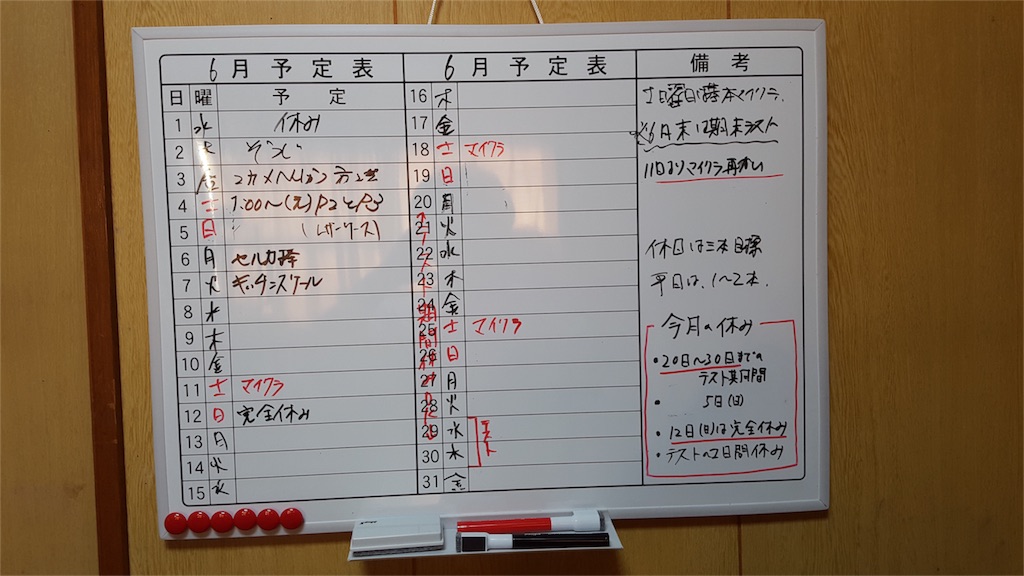 6月予定表
日 曜 予定
1 水 休み
2 木 ぞうい
3 金
4 土 1:00〜
5 日
6 月 セルカ棒
7 火 キッチンスケール
8 水
9 木
10 金
11 土 マイクラ
12 日 完全休み
13 月
14 火
15 水
6月予定表
16 木
17 金
18 土 マイクラ
19 日
20 月
21 火
22 水
23 木
24 金
25 土 マイクラ
26 日
27 月
28 火
29 水 テスト
30 木
31 金
期間休み
備考
土日曜日は基本マイクラ.
※6月末は期末テスト
11日よりマイクラ再開
休日は三本目標
平日は、1〜2本.
今月の休み
・20日〜30日までの
テスト期間
・5日(日)
・12日(日)は完全休み
・テストの2日間休み